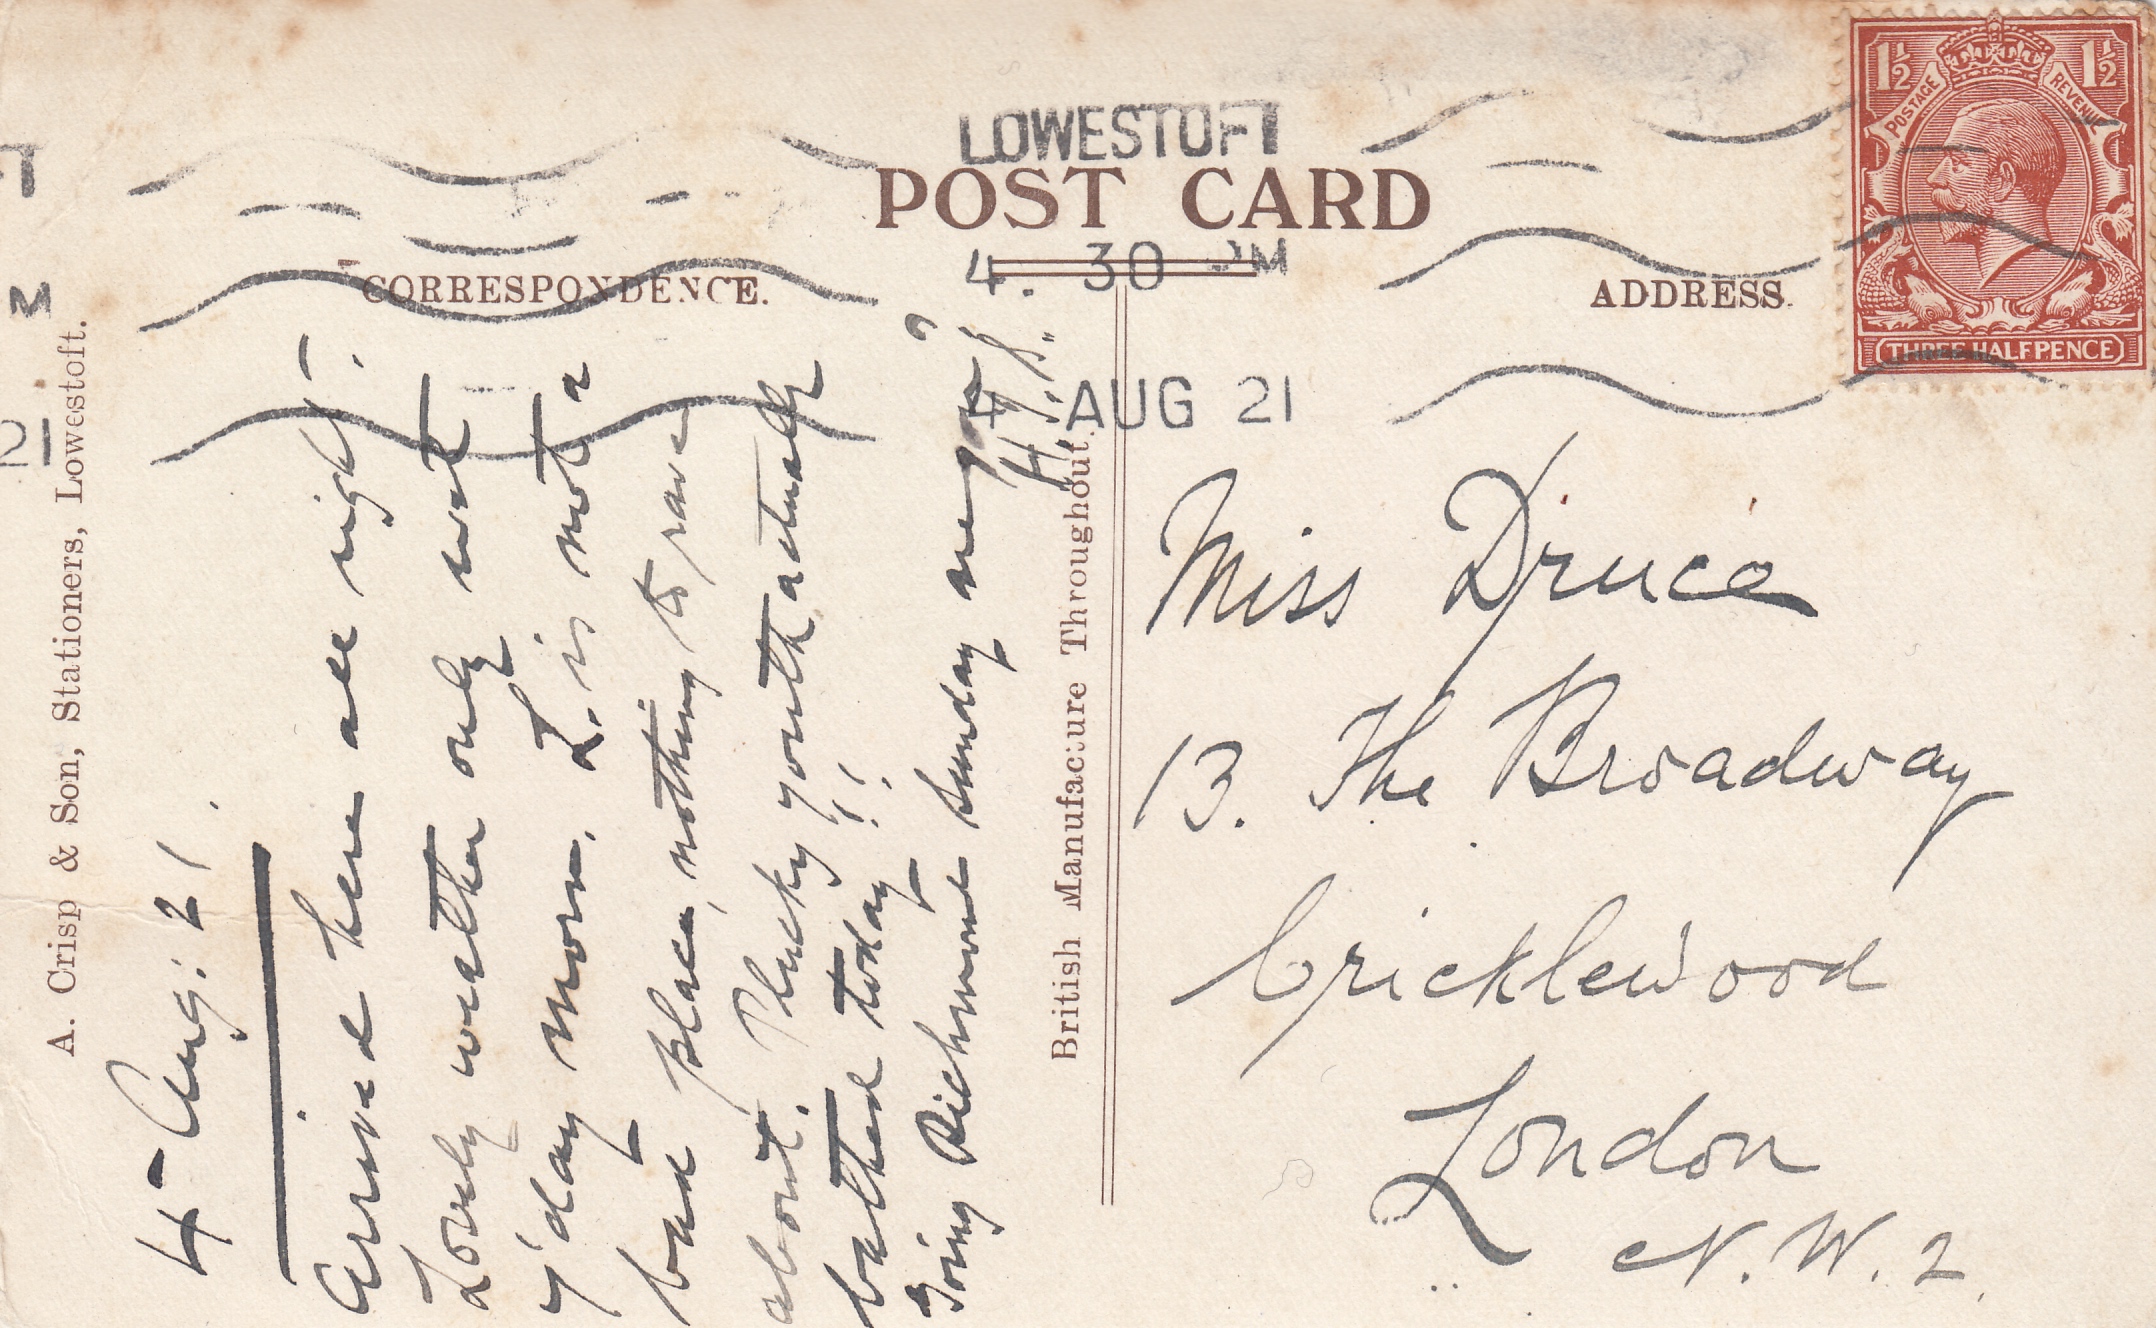 LOWESTOFT
POST CARD
4. 30 PM
4 AUG 21
CORRESPONDENCE.
ADDRESS.
1½ 1½
POSTAGE REVENUE
THREE HALFPENCE
A. Crisp & Son, Stationers, Lowestoft.
4 Aug: 21.
Arrived here all right.
Lovely weather only wet
y'day morn. L. is not a
bad place, nothing to rave
about. Plucky youth actually
bathed today!!
Going Richmond Sunday are you?
H.S.
British Manufacture Throughout.
Miss Druce
13. The Broadway
Cricklewood
London
N.W.2.
FT
M
21